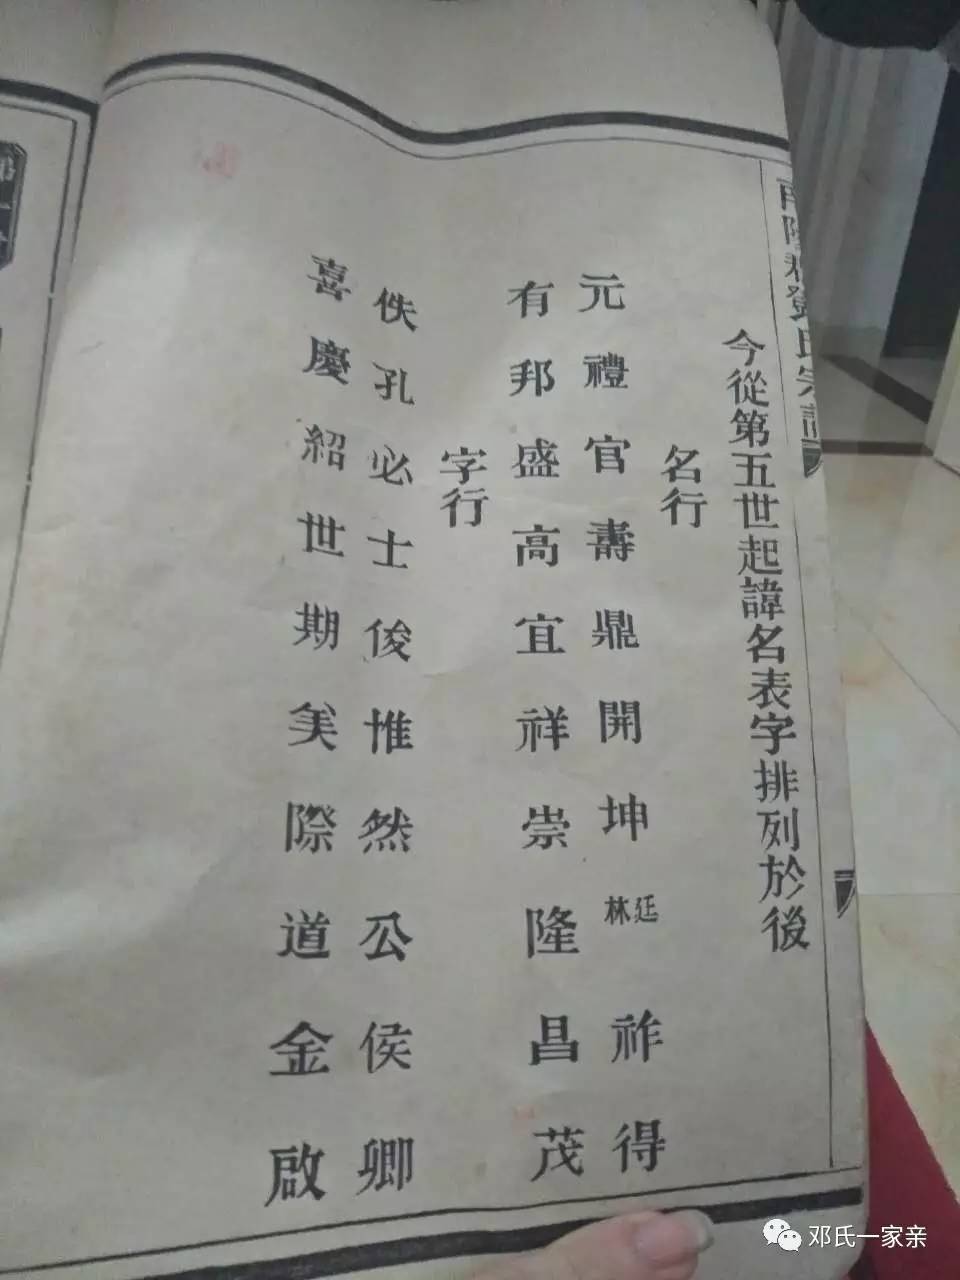 鄧氏宗譜
今從第五世起諱名表字排列於後
名行
元禮官壽鼎開坤廷林祚得
有邦盛高宜祥崇隆昌茂
字行
佚孔必士俊惟然公侯卿
喜慶紹世期美際道金啟
邓氏一家亲